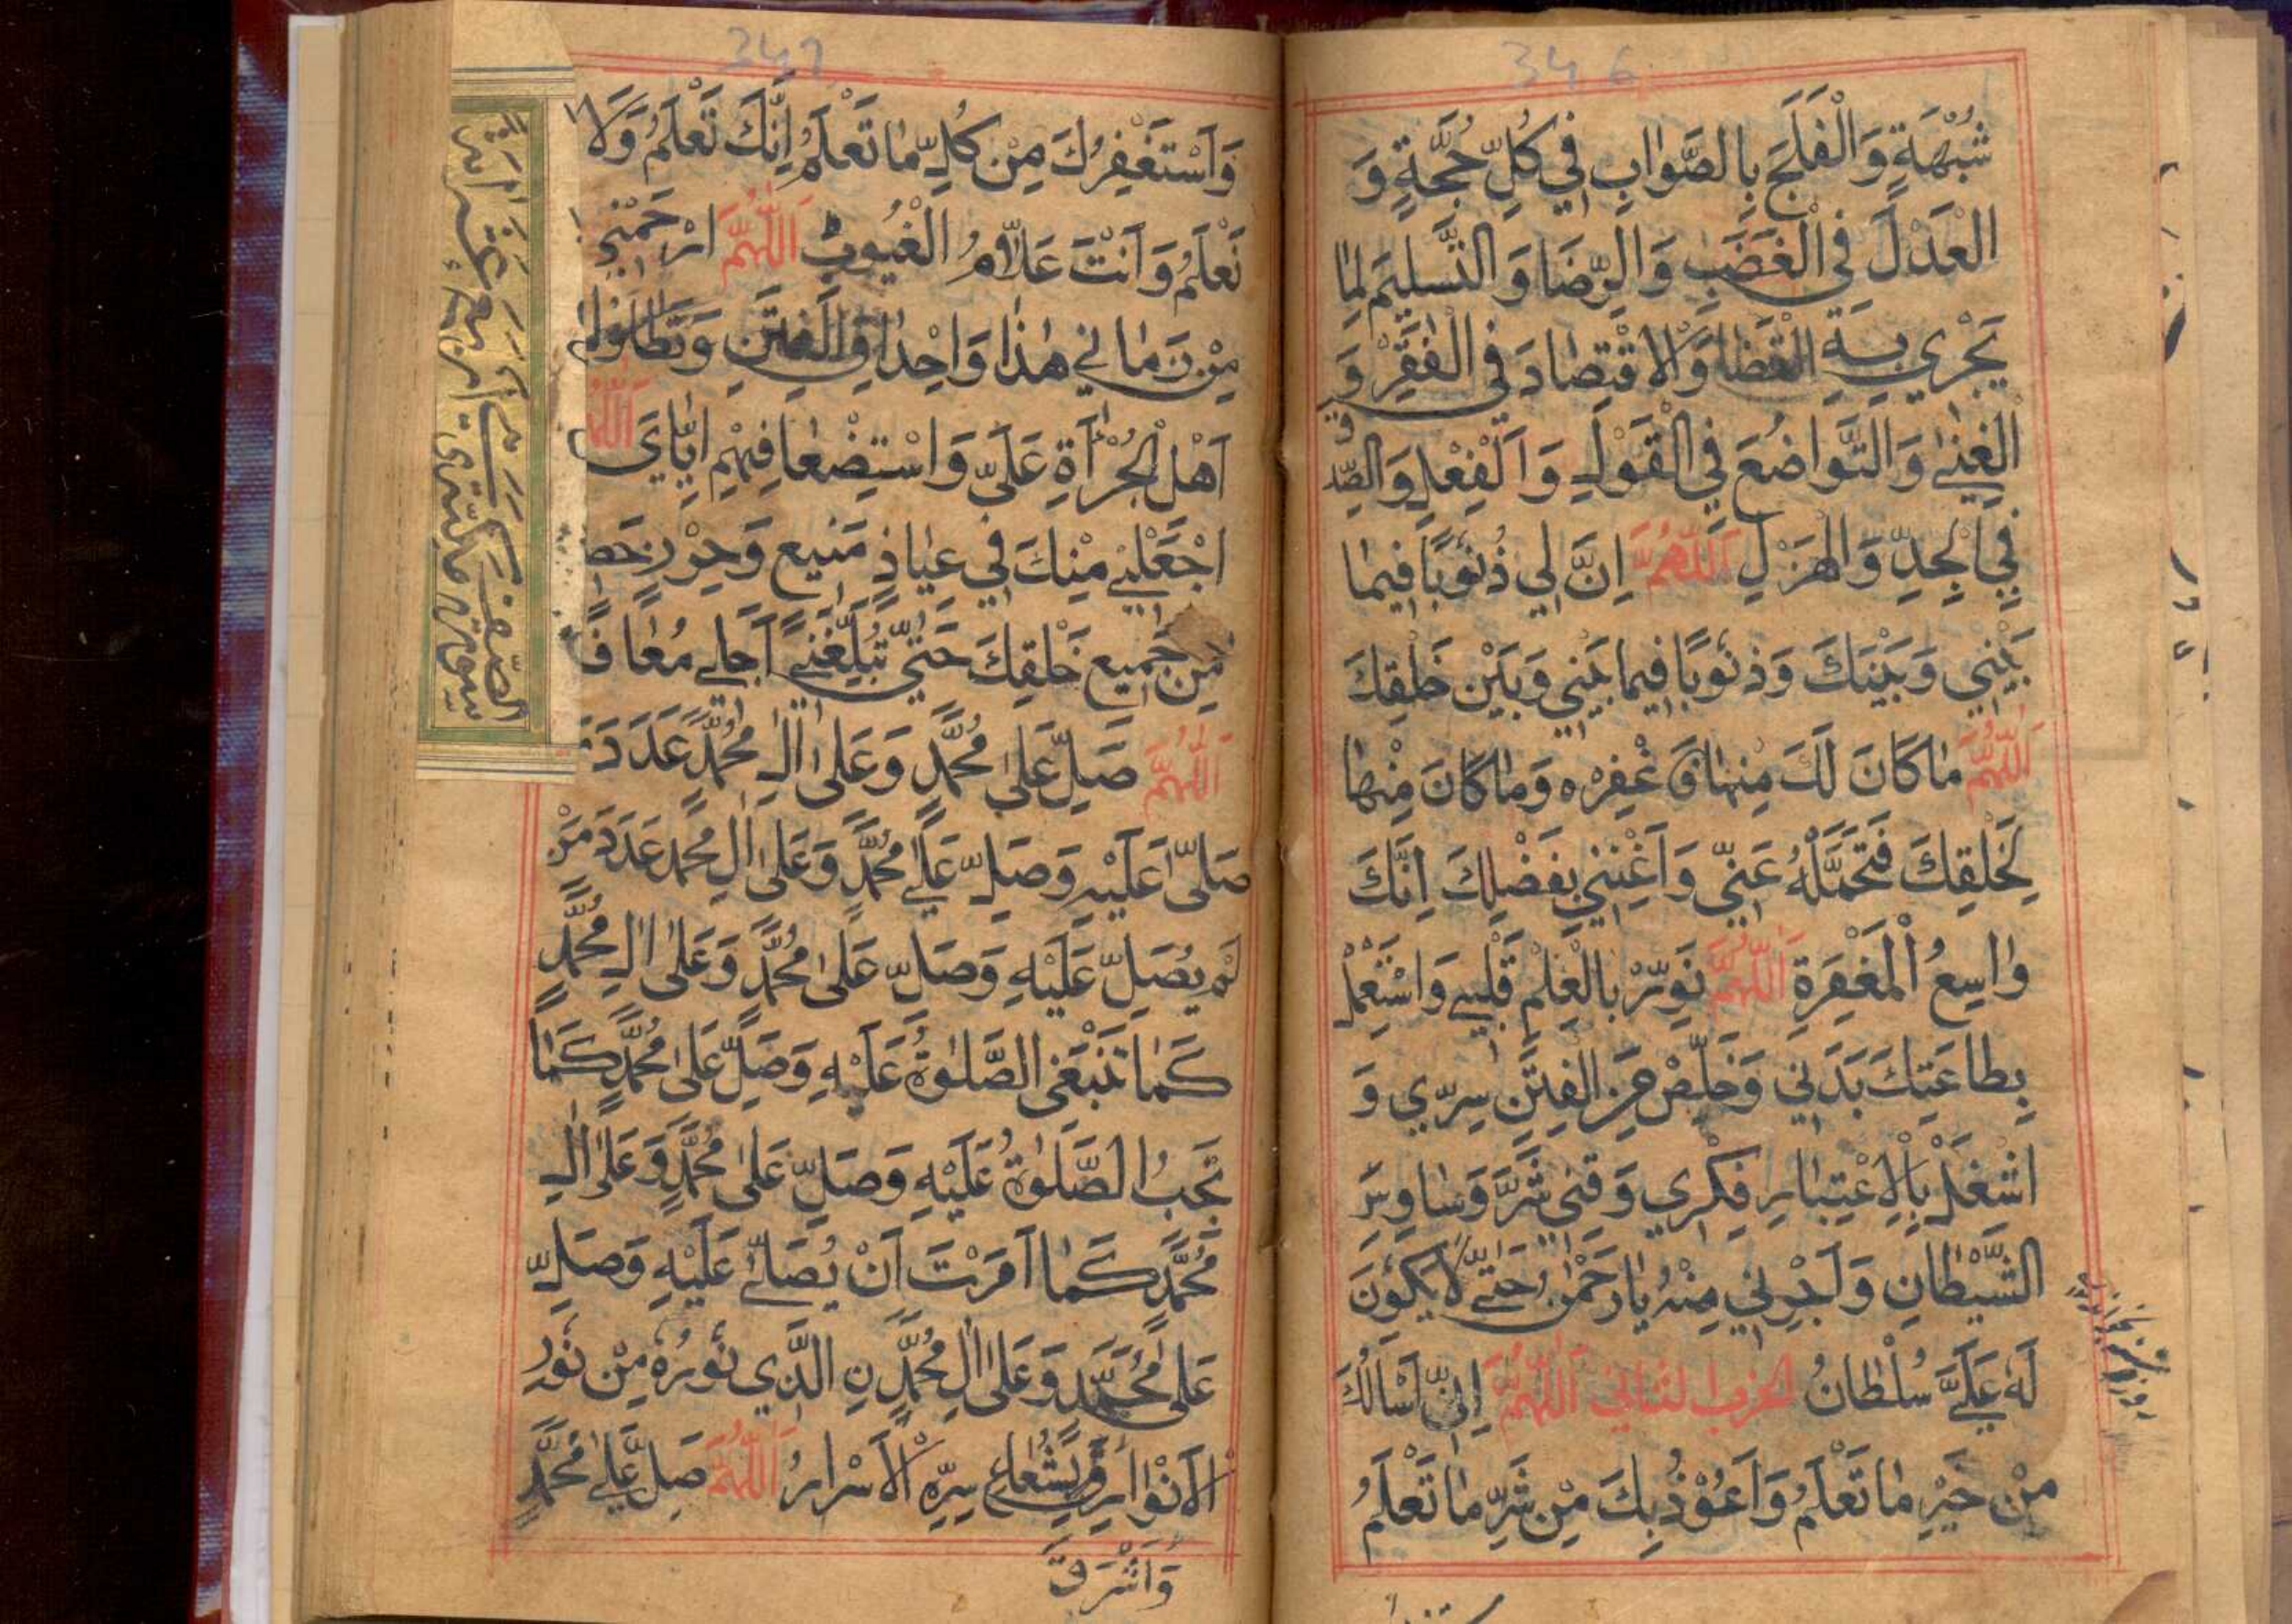 346
شُبْهَةٍ وَالْفَلَجَ بِالصَّوَابِ فِي كُلِّ حُجَّةٍ وَ
الْعَدْلَ فِي الْغَضَبِ وَالرِّضَا وَالتَّسْلِيمَ لِمَا
يَجْرِي بِهِ الْقَضَا وَالْاِقْتِصَادَ فِي الْفَقْرِ وَ
الْغِنَىٰ وَالتَّوَاضُعَ فِي الْقَوْلِ وَالْفِعْلِ وَالصِّدْقَ
فِي الْجِدِّ وَالْهَزْلِ اَللّٰهُمَّ اِنَّ لِي ذُنُوبًا فِيمَا
بَيْنِي وَبَيْنَكَ وَذُنُوبًا فِيمَا بَيْنِي وَبَيْنَ خَلْقِكَ
اَللّٰهُمَّ مَا كَانَ لَكَ مِنْهَا فَاغْفِرْهُ وَمَا كَانَ مِنْهَا
لِخَلْقِكَ فَتَحَمَّلْهُ عَنِّي وَاَغْنِنِي بِفَضْلِكَ اِنَّكَ
وَاسِعُ الْمَغْفِرَةِ اَللّٰهُمَّ نَوِّرْ بِالْعِلْمِ قَلْبِي وَاسْتَعْمِلْ
بِطَاعَتِكَ بَدَنِي وَخَلِّصْ مِنَ الْفِتَنِ سِرِّي وَ
اشْغَلْ بِالْاِعْتِبَارِ فِكْرِي وَقِنِي شَرَّ وَسَاوِسِ
الشَّيْطَانِ وَاَجِرْنِي مِنْهُ يَا رَحْمٰنُ حَتّٰى لَا يَكُونَ
لَهُ عَلَيَّ سُلْطَانُ الحزب الثاني اَللّٰهُمَّ اِنِّي اَسْاَلُكَ
مِنْ خَيْرِ مَا تَعْلَمُ وَاَعُوْذُ بِكَ مِنْ شَرِّ مَا تَعْلَمُ
347
وَاَسْتَغْفِرُكَ مِنْ كُلِّ مَا تَعْلَمُ اِنَّكَ تَعْلَمُ وَلَا
نَعْلَمُ وَاَنْتَ عَلَّامُ الْغُيُوبِ اَللّٰهُمَّ ارْحَمْنِي
مِنْ زَمَانِي هٰذَا وَاِحْدَاقِ الْفِتَنِ وَتَطَاوُلِ
اَهْلِ الْجُرْأَةِ عَلَيَّ وَاسْتِضْعَافِهِمْ اِيَّايَ اَللّٰهُمَّ
اجْعَلْنِي مِنْكَ فِي عِيَاذٍ مَنِيعٍ وَحِرْزٍ حَصِ
مِنْ جَمِيعِ خَلْقِكَ حَتّٰى تُبَلِّغَنِي اَجَلِي مُعَافً
اَللّٰهُمَّ صَلِّ عَلٰى مُحَمَّدٍ وَعَلٰى اٰلِ مُحَمَّدٍ عَدَدَ مَ
صَلّٰى عَلَيْهِ وَصَلِّ عَلٰى مُحَمَّدٍ وَعَلٰى اٰلِ مُحَمَّدٍ عَدَدَ مَنْ
لَمْ يُصَلِّ عَلَيْهِ وَصَلِّ عَلٰى مُحَمَّدٍ وَعَلٰى اٰلِ مُحَمَّدٍ
كَمَا تَنْبَغِى الصَّلٰوةُ عَلَيْهِ وَصَلِّ عَلٰى مُحَمَّدٍ كَمَا
تَجِبُ الصَّلٰوةُ عَلَيْهِ وَصَلِّ عَلٰى مُحَمَّدٍ وَعَلٰى اٰلِ
مُحَمَّدٍ كَمَا اَمَرْتَ اَنْ يُصَلّٰى عَلَيْهِ وَصَلِّ
عَلٰى مُحَمَّدٍ وَعَلٰى اٰلِ مُحَمَّدٍ نِ الَّذِي نُورُهُ مِنْ نُورِ
الْاَنْوَارِ وَاَشْرَقَ بِشُعَاعِ سِرِّهِ الْاَسْرَارُ اَللّٰهُمَّ صَلِّ عَلٰى مُحَمَّدٍ
وَاَشْرَقَ